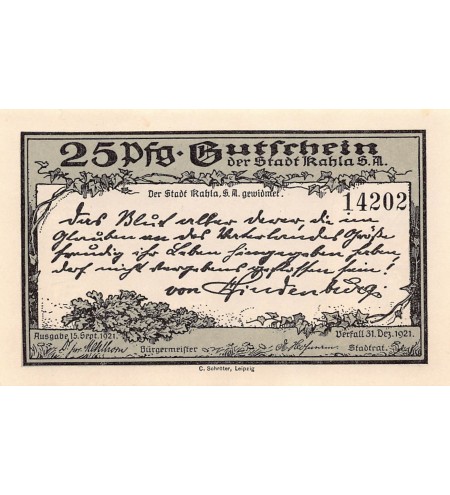 25 Pfg. Gutschein
der Stadt Kahla S.A.
Der Stadt Kahla, S.A. gewidmet.
14202
Das Blut aller derer, die im
Glauben an des Vaterlandes Größe
freudig ihr Leben hingegeben haben,
darf nicht vergebens geflossen sein!
von Hindenburg.
Ausgabe 15. Sept. 1921.
Verfall 31. Dez. 1921.
Bürgermeister
Stadtrat.
C. Schröter, Leipzig